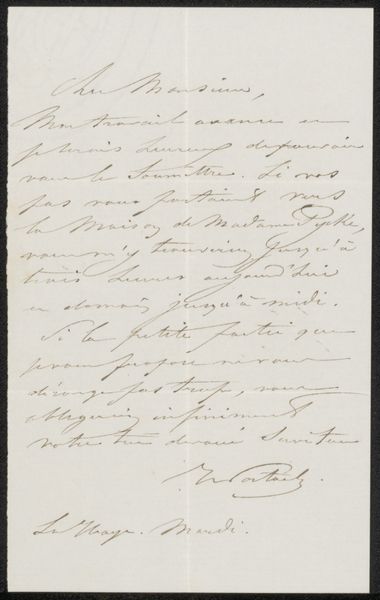 Cher Monsieur,
Mon travail avance et
je serais heureux de pouvoir
vous le soumettre. Si vos
pas vous portaient vers
la Maison de Madame
vous m'y trouverez jusqu'à
trois heures aujourd'hui
et demain jusqu'à midi.
Si la petite partie que
je vous propose ne vous
dérange pas trop, vous
obligerez infiniment
votre très dévoué Serviteur
La Haye. Mardi.